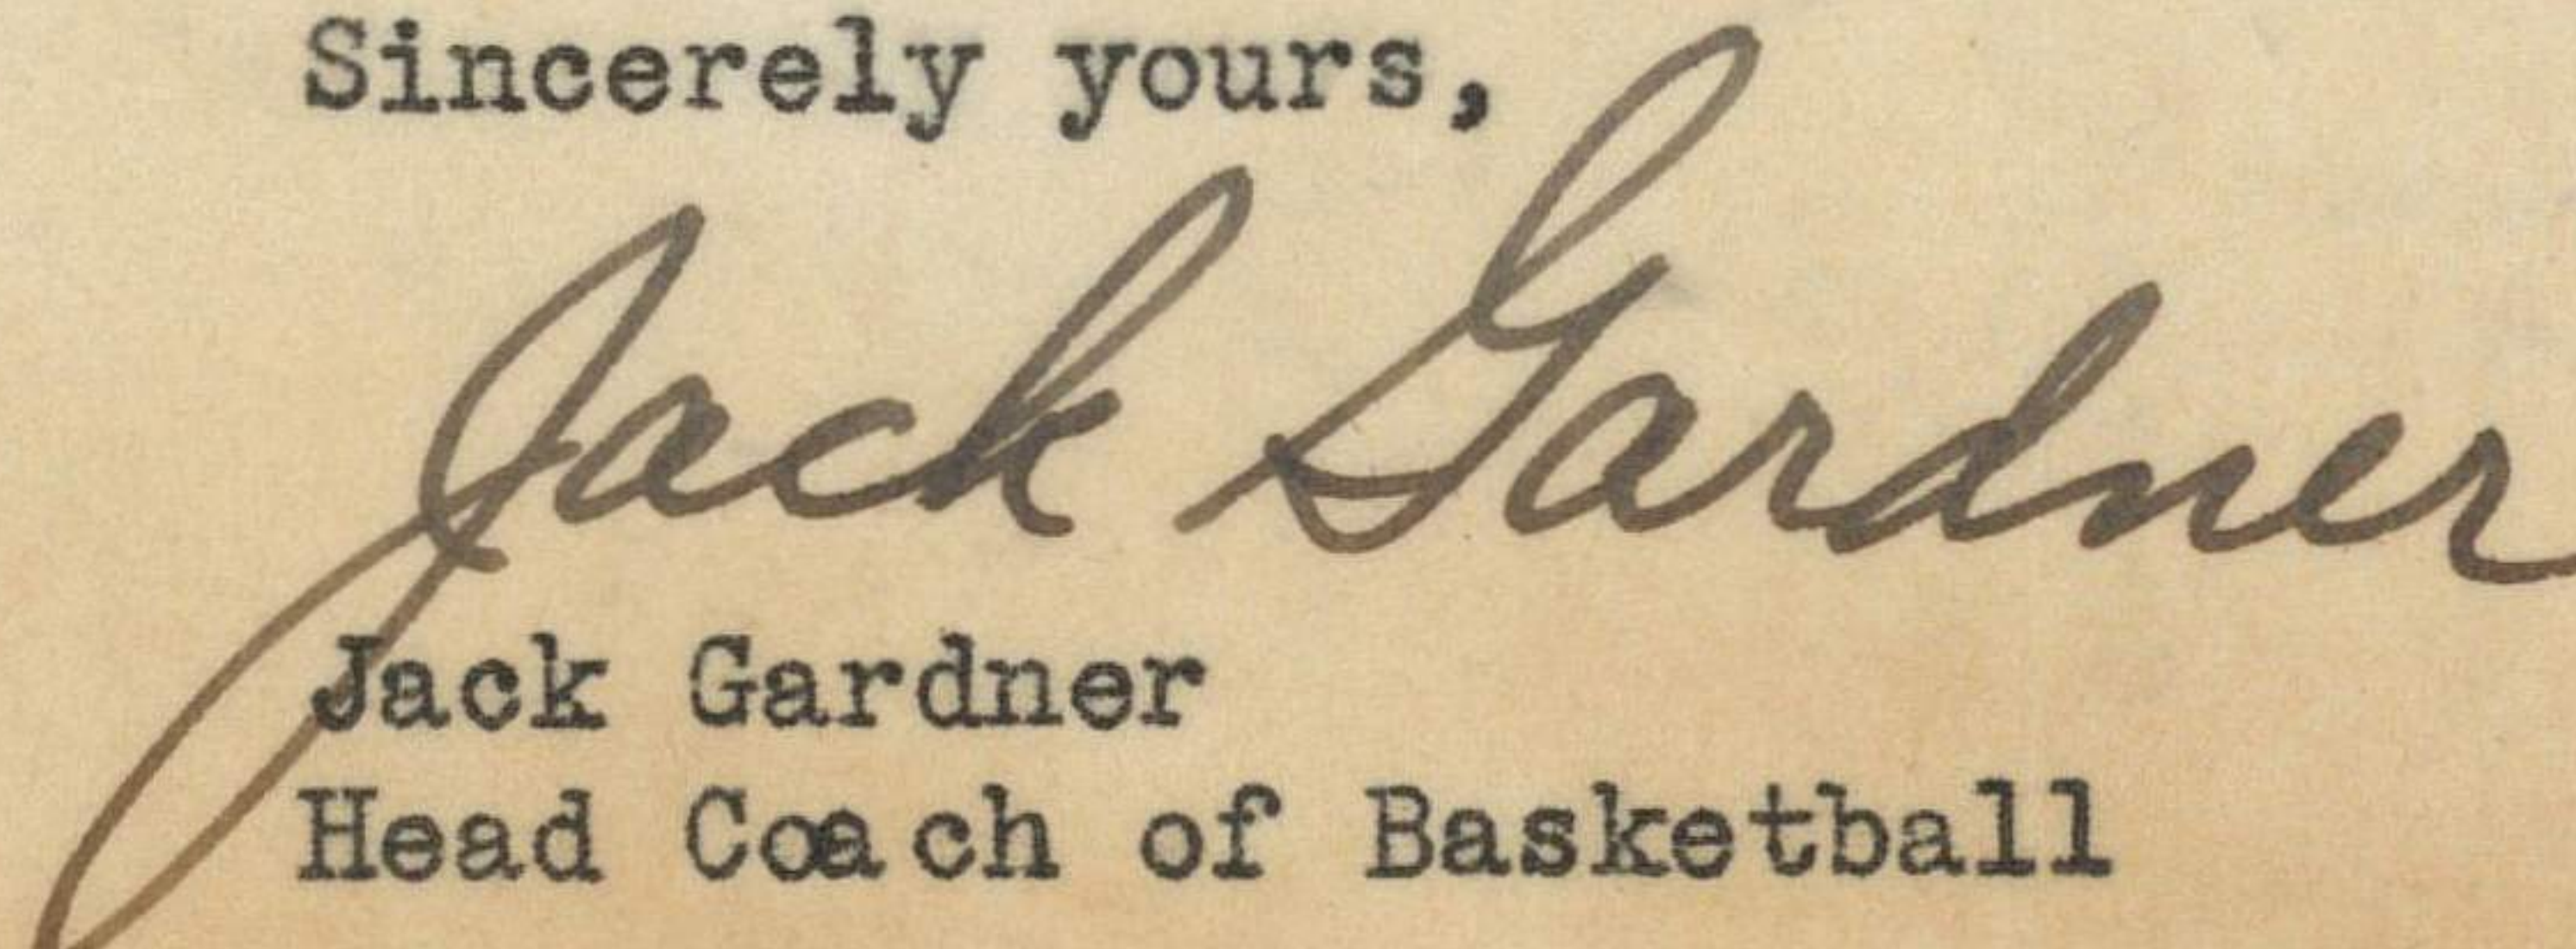 Sincerely yours,
Jack Gardner
Jack Gardner
Head Coach of Basketball